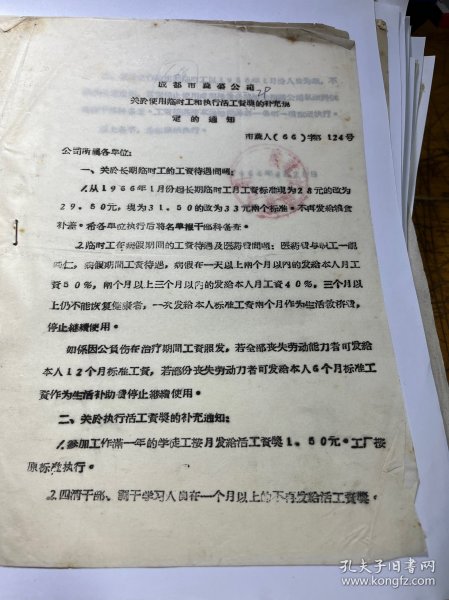 成都市蔬菜公司
关於使用临时工和执行活工資獎的补充規
定的通知
市蔬人(66)字第124号
公司所属各单位:
一、关於长期临时工的工資待遇問題:
1.从1966年1月份起长期临时工月工資标准現为28元的改为
29.50元,現为31.50的改为33元兩个标准。不再发給粮食
补差。希各单位执行后将名单报干部科备查。
2.临时工在病假期間的工資待遇及医葯費問題:医葯費与职工一視
同仁,病假期間工資待遇,病假在一天以上兩个月以內的发給本人月工
資50%,兩个月以上三个月以內的发給本人月工資40%,三个月以
上仍不能恢复健康者,一次发給本人标准工資兩个月作为生活救济費,
停止継續使用。
如係因公負伤在治疗期間工資照发,若全部丧失劳动能力者可发給
本人12个月标准工資,若部份丧失劳动力者可发給本人6个月标准工
資作为生活补助費停止継續使用。
二、关於执行活工資獎的补充通知:
1.参加工作滿一年的学徒工按月发給活工資獎1.50元。工厂按
原标准执行。
2.四清干部、調干学习人員在一个月以上的不再发給活工資獎。
孔夫子旧书网
www.kongfz.com